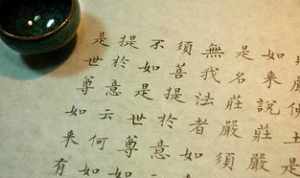 嚴佛土是
如來說莊嚴
是名莊嚴須
無我法者如
須菩提於意
不如是世尊如
提於意云何如
是世尊如來有